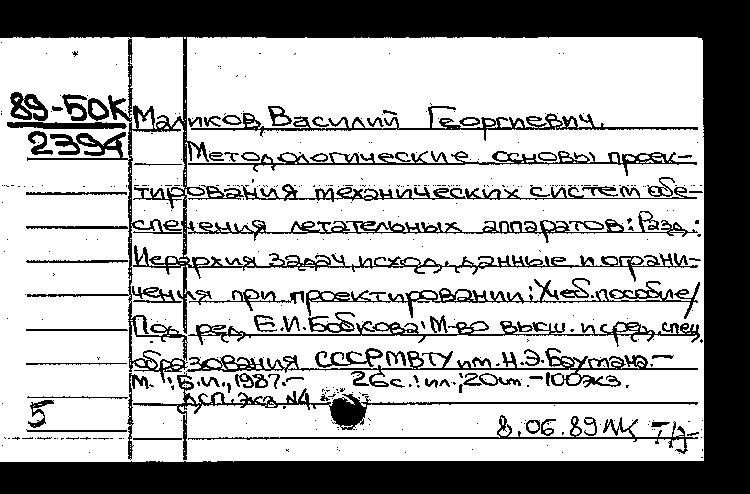 89-БОК
2394
Маликов, Василий Георгиевич.
Методологические основы проек-
тирования механических систем обе-
спечения летательных аппаратов: Разд.:
Иерархия задач, исход. данные и ограни-
чения при проектировании: Учеб. пособие/
Под ред. Е.И. Бобкова; М-во высш. и сред. спец.
образования СССР, МВТУ им. Н.Э. Баумана.-
М.: Б.и., 1987.- 26с.: ил.; 20см.-100экз.
ДСП. экз. N4.
5
8.06.89